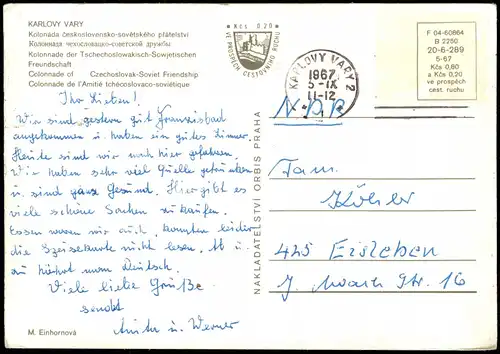 KARLOVY VARY
Kolonáda československo-sovětského přátelství
Колоннада чехословацко-советской дружбы
Kolonnade der Tschechoslowakisch-Sowjetischen
Freundschaft
Colonnade of Czechoslovak-Soviet Friendship
Colonnade de l'Amitié tchécoslovaco-soviétique
Kčs 0.20
VE PROSPĚCH CESTOVNÍHO RUCHU
KARLOVY VARY 2
1967
5-IX
11-12
F 04-60864
B 2250
20-6-289
5-67
Kčs 0,80
a Kčs 0,20
ve prospěch
cest. ruchu
Ihr Lieben!
Wir sind gestern gut Franzisbad
angekommen u. haben ein gutes Zimmer.
Heute sind wir nach hier gefahren.
Wir haben sehr viel Quelle getrunken
u. sind ganz Gesund. Hier gibt es
viele schöne Sachen zu kaufen.
Essen waren wir auch, konnten leider
die Speisekarte nicht lesen. Ab u.
zu hört man Deutsch.
Viele liebe Grüße
sendet
Anita u. Werner
NAKLADATELSTVÍ ORBIS PRAHA
DDR
Fam.
Köhler
425 Eisleben
Str. 16
M. Einhornová